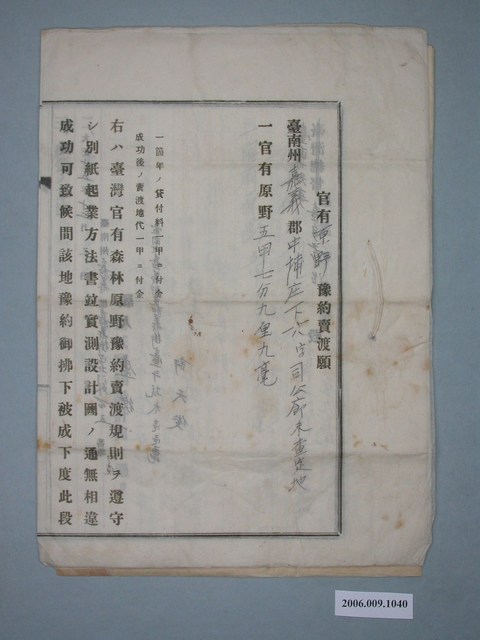 官有原野豫約賣渡願
臺南州嘉義郡中埔庄下六字司公廍未查定地
一官有原野五甲七分九厘九毫
一箇年ノ貸付料一甲ニ付金
成功後ノ賣渡地代一甲ニ付金
右ハ臺灣官有森林原野豫約賣渡規則ヲ遵守
シ別紙起業方法書竝實測設計圖ノ通無相違
成功可致候間該地豫約御拂下被成下度此段
2006.009.1040